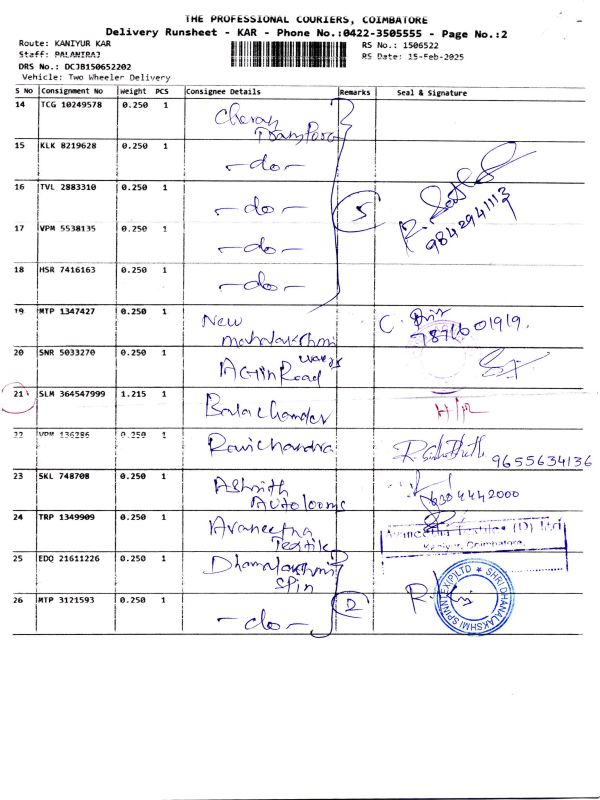 THE PROFESSIONAL COURIERS, COIMBATORE
Delivery Runsheet - KAR - Phone No.:0422-3505555 - Page No.:2
Route: KANIYUR KAR
RS No.: 1506522
Staff: PALANIRAJ
RS Date: 15-Feb-2025
DRS No.: DCJB150652202
Vehicle: Two Wheeler Delivery
S No Consignment No Weight PCS Consignee Details Remarks Seal & Signature
14 TCG 10249578 0.250 1 Cheran
Transport
15 KLK 8219628 0.250 1 -do-
16 TVL 2883310 0.250 1 -do- 5
9842941113
17 VPM 5538135 0.250 1 -do-
18 HSR 7416163 0.250 1 -do-
19 MTP 1347427 0.250 1 New
mahalakshmi
20 SNR 5033270 0.250 1
21 SLM 364547999 1.215 1 Balachander H/R
22 VPM 136286 0.250 1 Ravichandra 9655634136
23 SKL 748708 0.250 1 Ashrith
Autolooms
24 TRP 1349909 0.250 1 Avaneetha
Textile
Avaneetha Textiles (P) Ltd
Kaniyur, Coimbatore.
25 EDQ 21611226 0.250 1 Dhanalakshmi
Spin
26 MTP 3121593 0.250 1 -do- 2
SHRI DHANALAKSHMI SPINNTEX (P) LTD